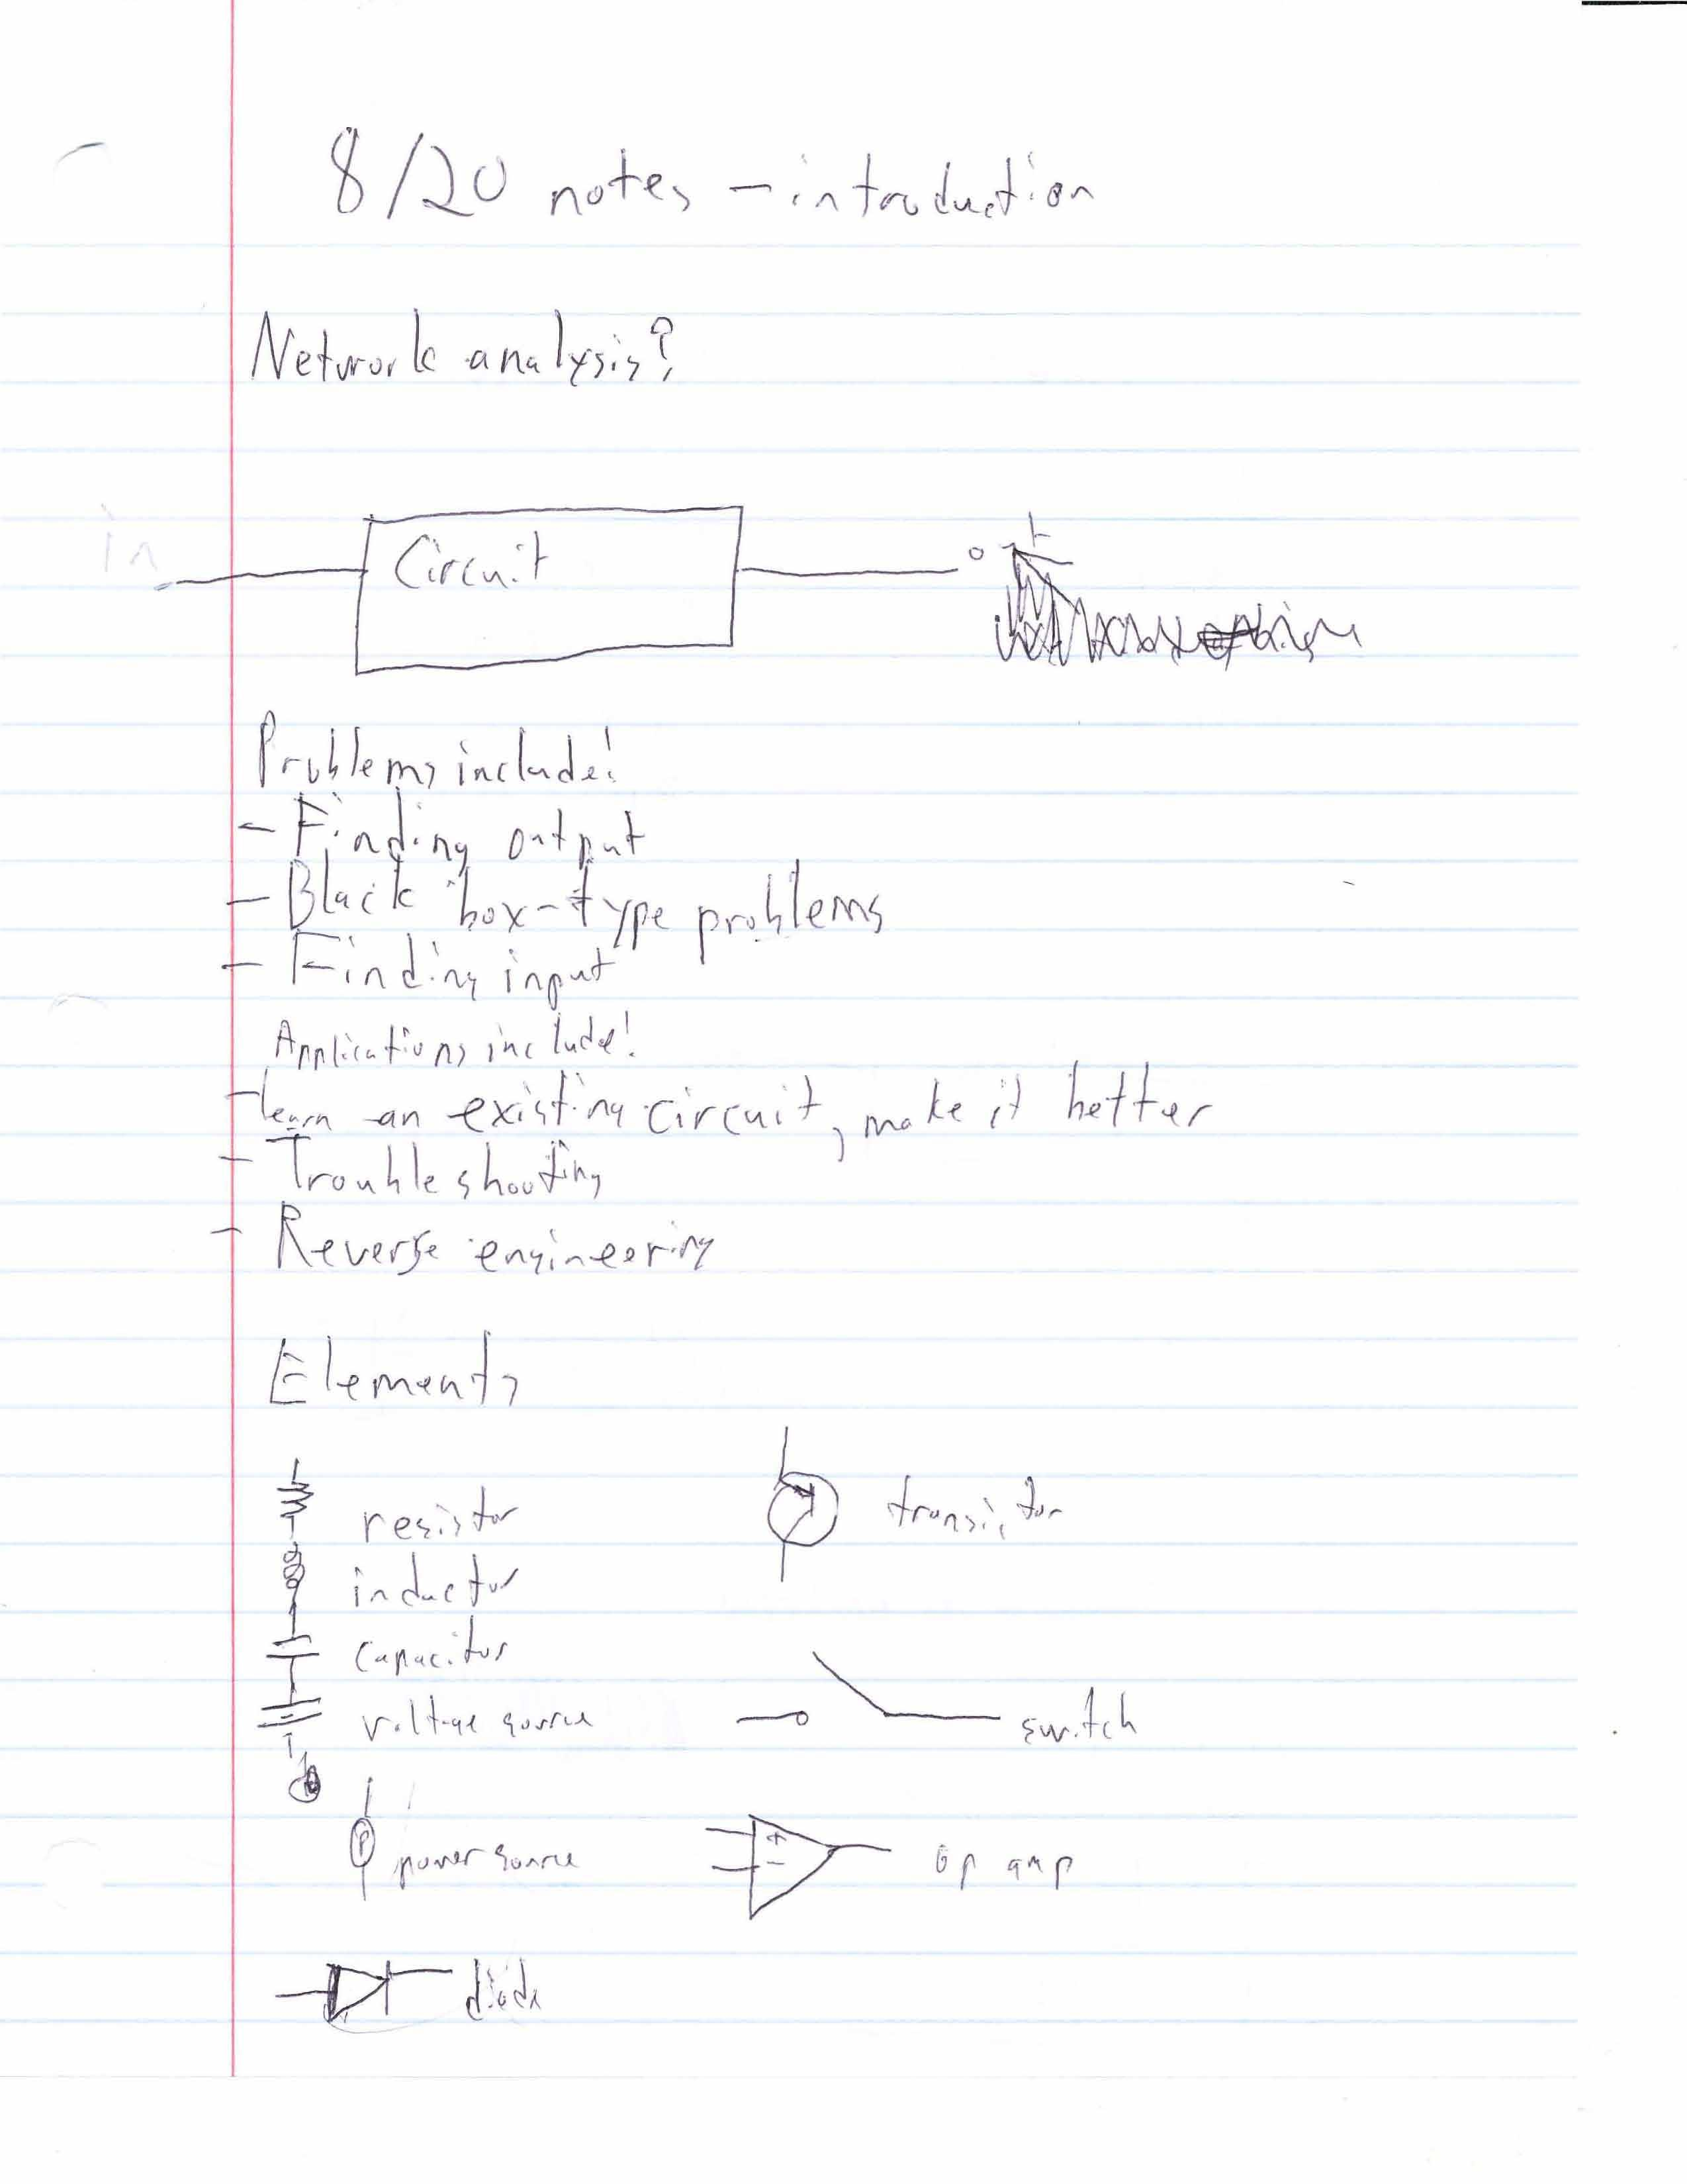 8/20 notes - introduction
Network analysis?
in
Circuit
out
Problems include:
- Finding output
- Black box-type problems
- Finding input
Applications include:
- learn an existing circuit, make it better
- Troubleshooting
- Reverse engineering
Elements
resistor
transistor
inductor
capacitor
voltage source
switch
P power source
+
-
op amp
diode